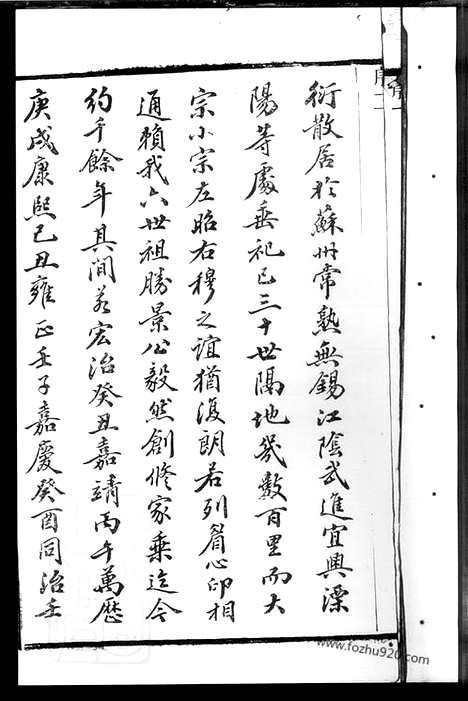 衍散居於蘇州常熟無錫江陰武進宜興溧
陽等處垂祀已三十世隔地幾數百里而大
宗小宗左昭右穆之誼猶復朗若列眉心印相
通賴我六世祖勝景公毅然創修家乘迄今
約千餘年其間若宏治癸丑嘉靖丙午萬歷
庚戌康熙己丑雍正壬子嘉慶癸酉同治壬
www.fozhu920.com